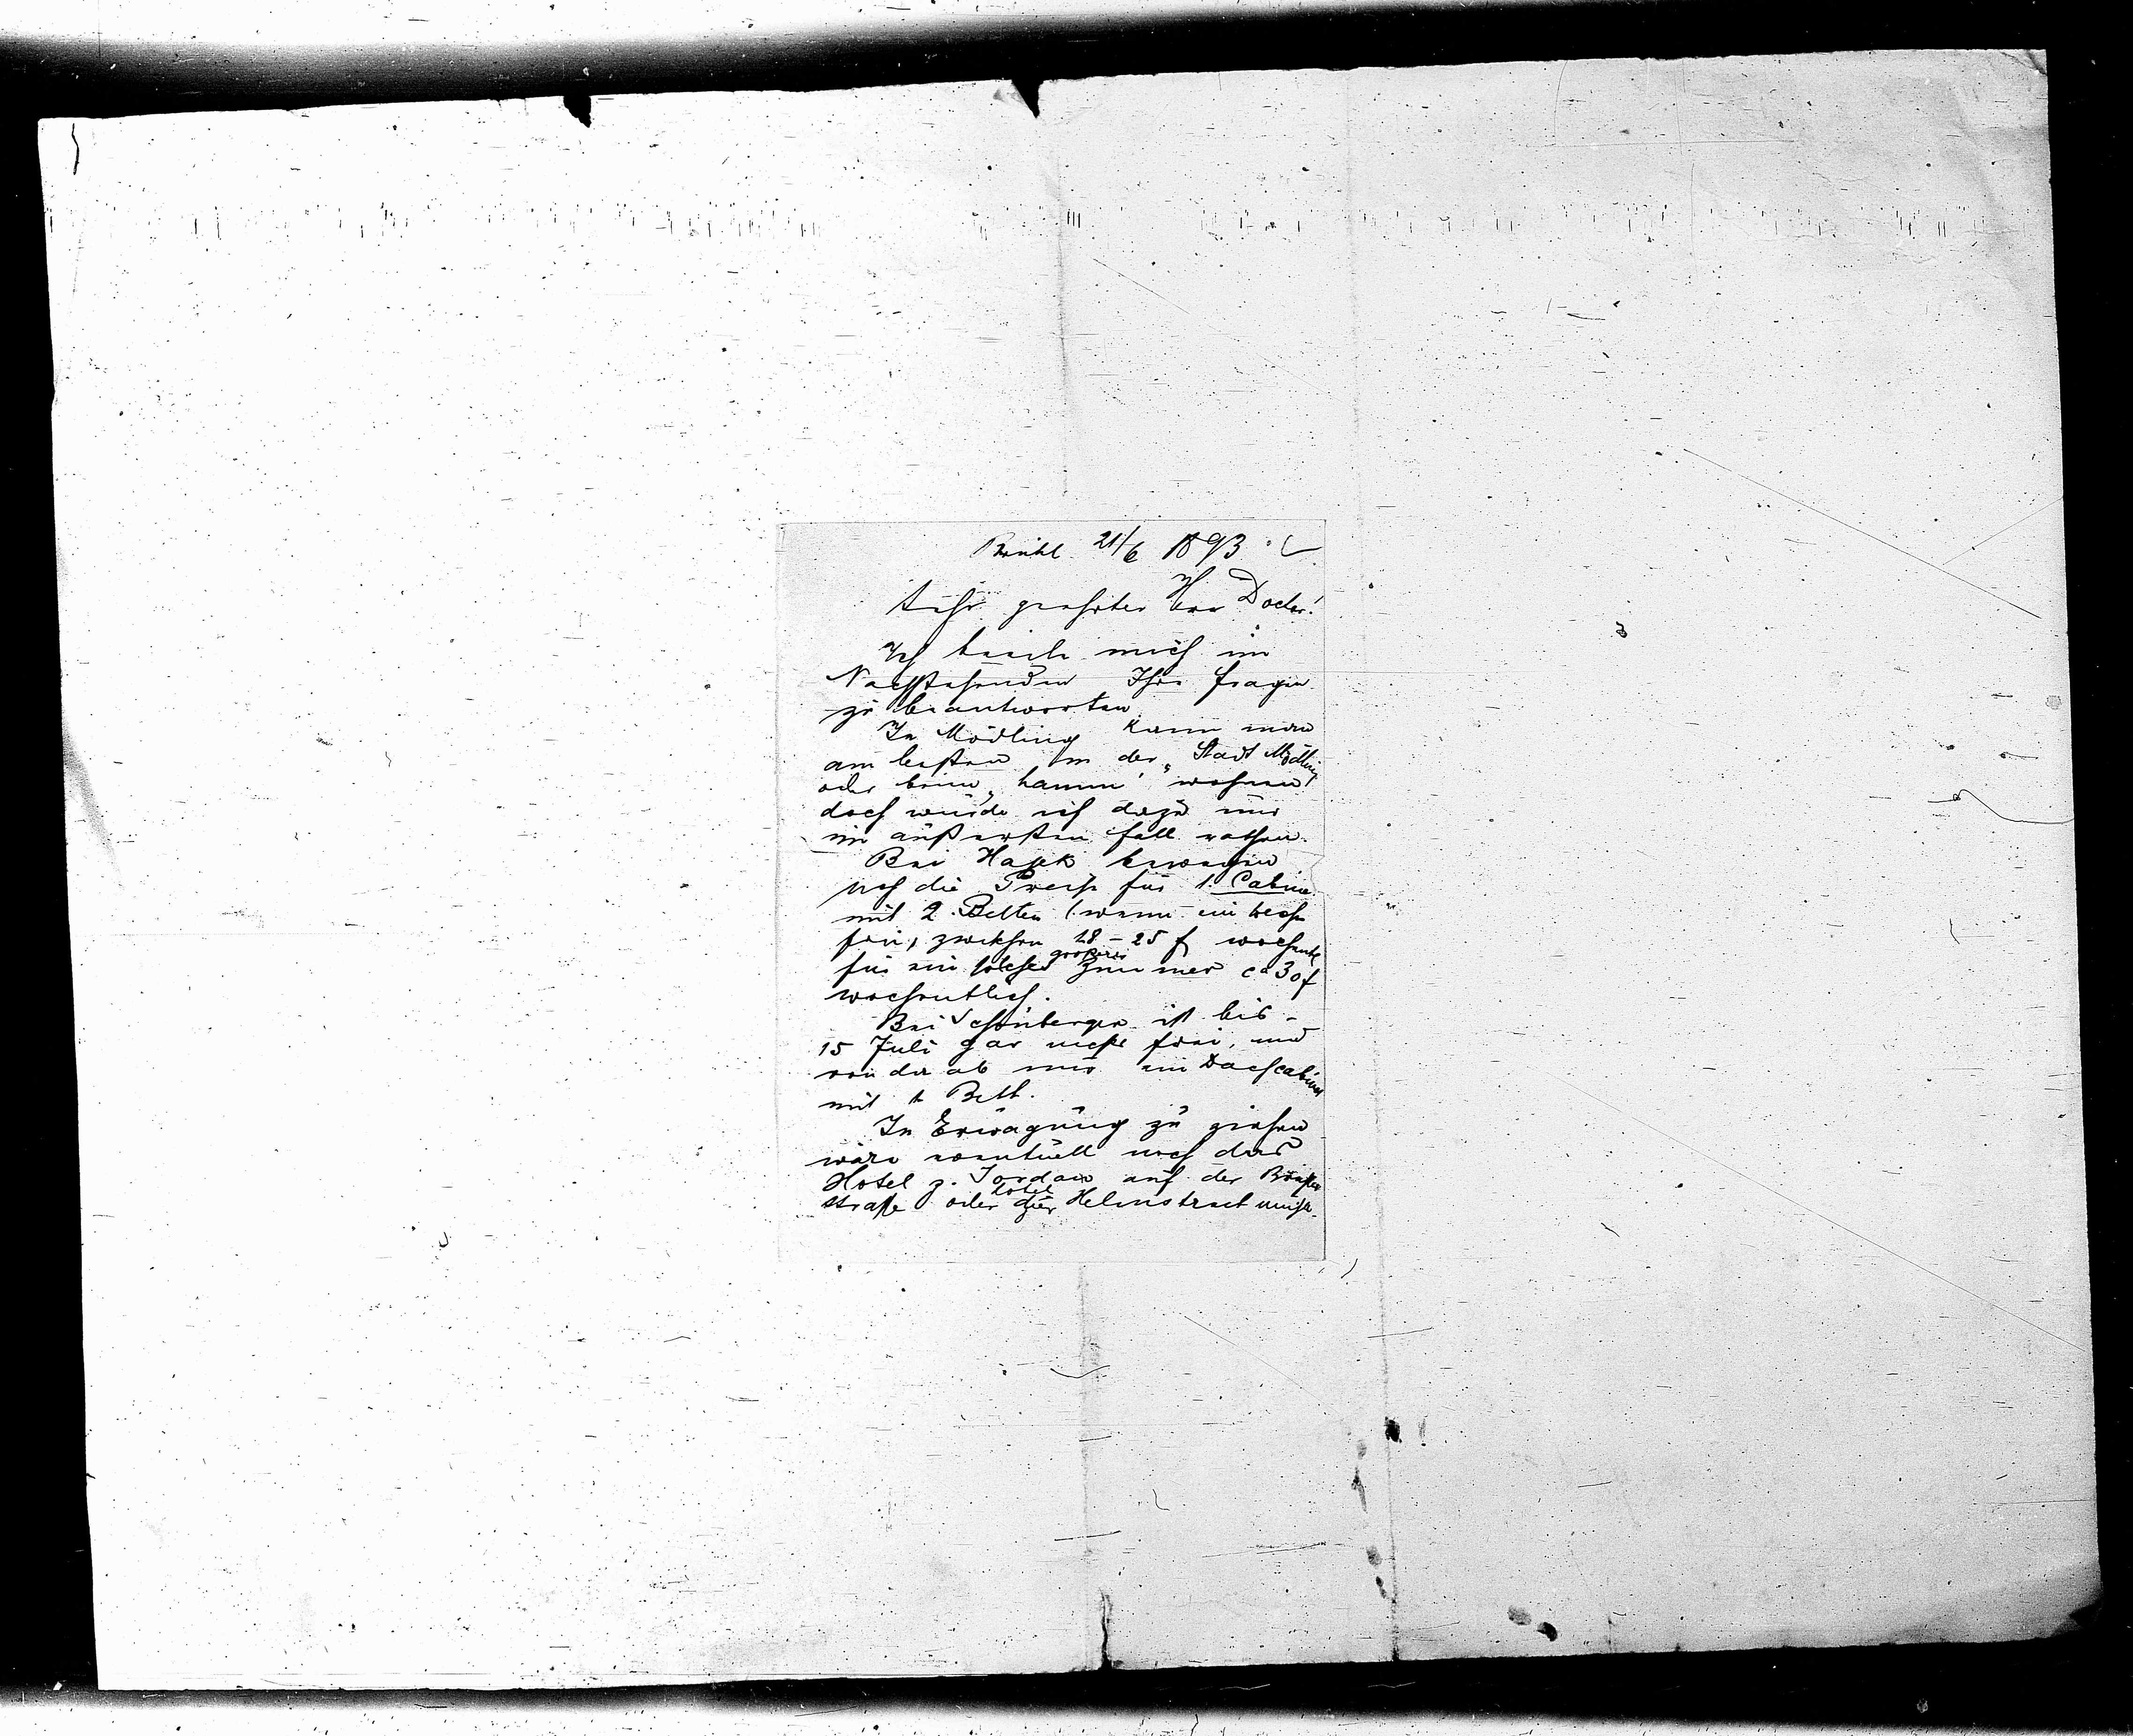 Brühl 21/6 1893.
Sehr geehrter Herr Doctor!
Ich beeile mich im
Nachstehenden Ihre Fragen
zu beantworten.
In Mödling kann man
am besten in der „Stadt Mödling
oder beim „Lamm" wohnen
doch würde ich dazu nur
im äußersten Fall rathen.
Bei Hajek bewegen
sich die Preise für 1. Cabine
mit 2. Betten (wenn ein
frei, zwischen 18-25 f wochentl
für ein solches größeres Zimmer ca 30f
wochentlich.
Bei Schönberger ist bis
15 Juli gar nichts frei, und
von da ab nur ein Dachcabinet
mit 1 Bett.
In Erwägung zu ziehen
wäre eventuell noch das
Hotel z. Jordan auf der Brühler
straße oder Hotel